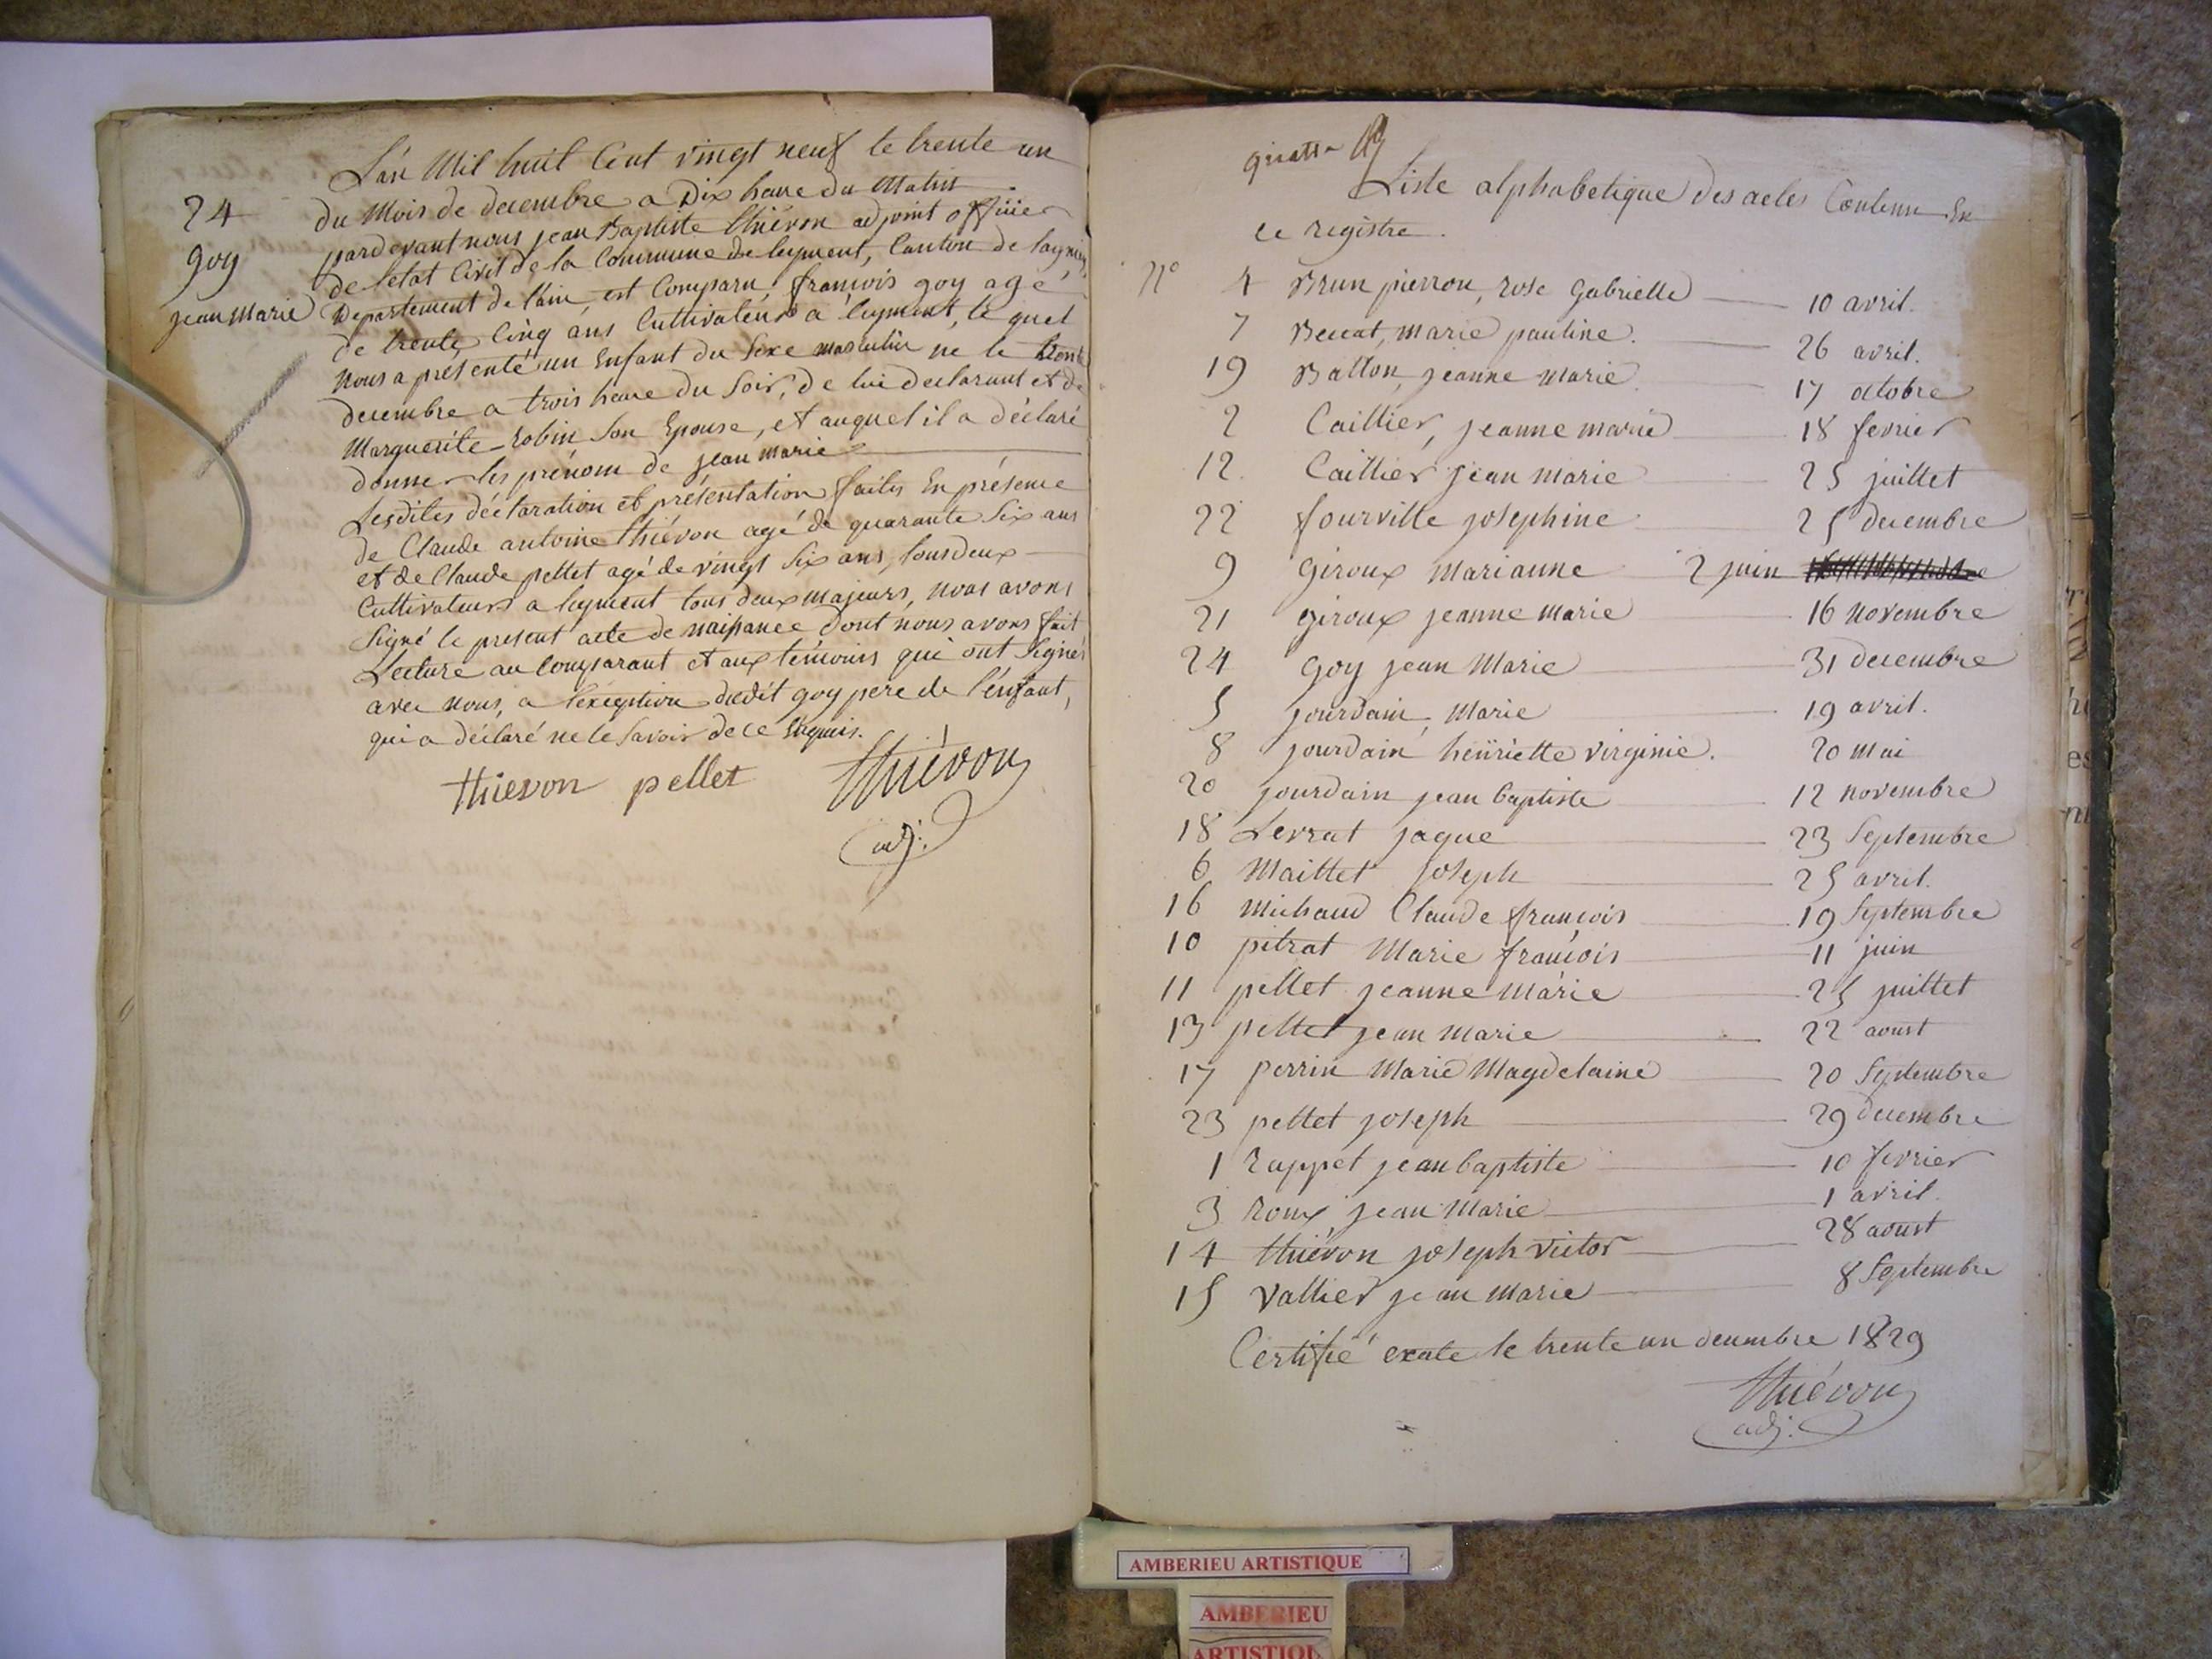 L'an Mil huit Cent vingt neuf le trente un
24
du Mois de decembre a Dix heure du Matin
goy
pardevant nous jean Baptiste thiévon adjoint officier
de letat Civil de la Commune de leyment, Canton de lagnieu,
jean Marie
Departement de l'ain, est Comparu françois goy agé
de trente Cinq ans Cultivateur a leyment, le quel
nous a présenté un Enfant du Sexe masculin né le trente
decembre a trois heure du Soir, de lui declarant et de
Marguerite Robin Son Epouse, et auquel il a déclaré
donner les prénom de jean marie
Lesdites déclaration et présentation faites En présence
de Claude antoine thiévon agé de quarante Six ans
et de Claude pellet agé de vingt Six ans, tous deux
Cultivateurs a leyment tous deux majeurs, nous avons
Signé le present acte de naissance dont nous avons fait
Lecture au Comparant et aux témoins qui ont Signés
avec nous, a l'exception dudit goy pere de l'énfant,
qui a déclaré ne le Savoir de ce Enquis.
thievon pellet thiévon
adj:
quatre
Liste alphabetique des actes Contenu En
ce registre.
N° 4 Brun pierron, rose gabrielle 10 avril.
7 Beccat, marie pauline. 26 avril.
19 Balton, jeanne marie 17 octobre
2 Caillier, jeanne marie 18 fevrier
12. Caillier jean marie 25 juillet
22 fourville josephine 25 decembre
9 giroux marianne 2 juin
21 giroux jeanne marie 16 novembre
24 goy jean Marie 31 decembre
5 jourdain, Marie 19 avril.
8 jourdain henriette virginie. 20 mai
20 jourdain jean baptiste 12 novembre
18 Levrat jaque 23 Septembre
6 Maillet joseph 25 avril.
16 Michaud Claude françois 19 Septembre
10 pitrat Marie françois 11 juin
11 pellet jeanne marie 25 juillet
13 pellet jean marie 22 aoust
17 perrin Marie Magdelaine 20 Septembre
23 pellet joseph 29 decembre
1 rappet jean baptiste 10 fevrier
3 roux jean Marie 1 avril.
14 thiévon joseph victor 28 aoust
15 vallier jean marie 8 Septembre
Certifié exate le trente un decembre 1829
thiévon
adj:
AMBERIEU ARTISTIQUE
AMBERIEU
ARTISTIQU